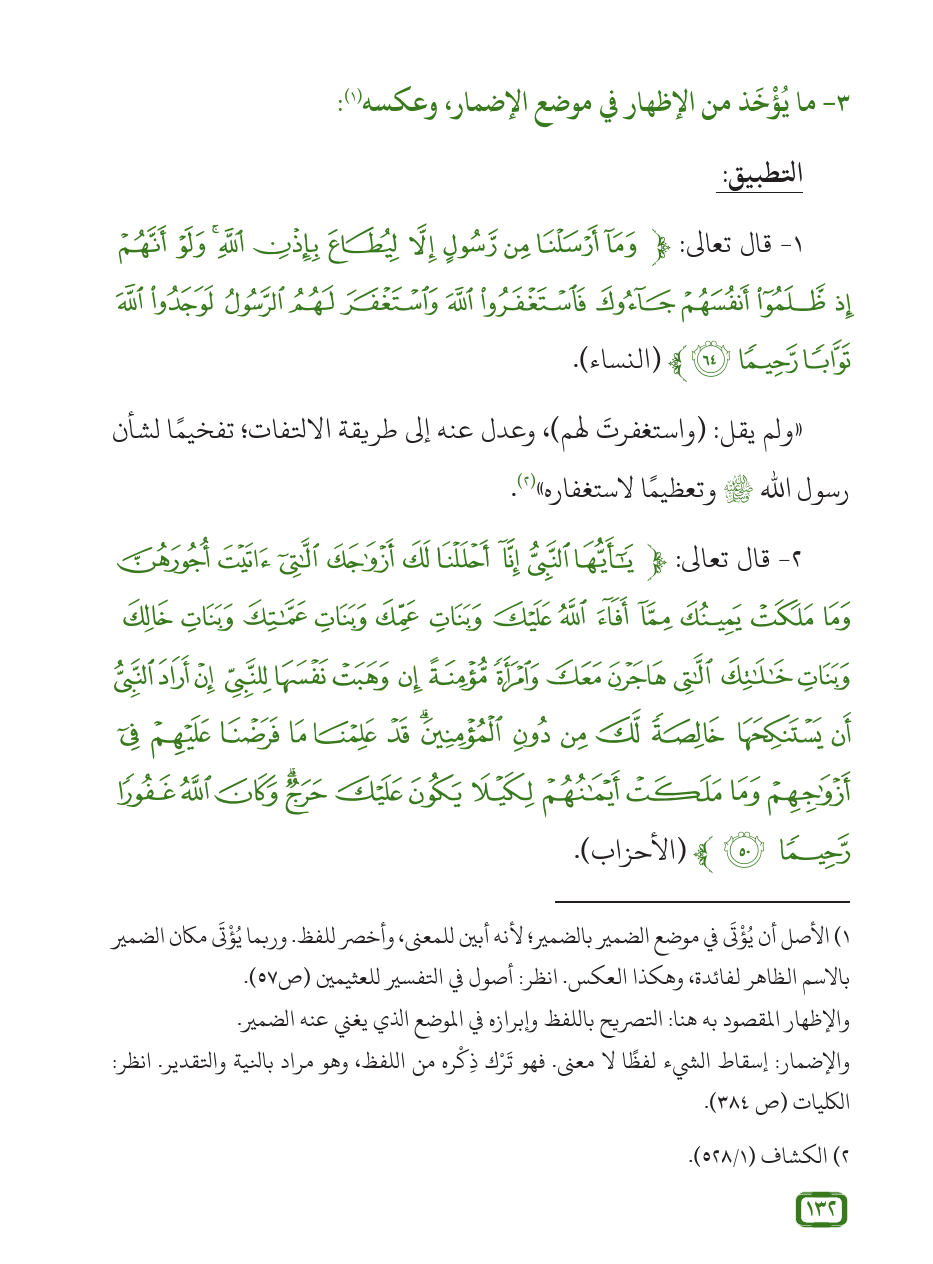 ٣- ما يُؤْخَذ من الإظهار في موضع الإضمار، وعكسه(١):
التطبيق:
١- قال تعالى: ﴿ وَمَآ أَرۡسَلۡنَا مِن رَّسُولٍ إِلَّا لِيُطَاعَ بِإِذۡنِ ٱللَّهِۚ وَلَوۡ أَنَّهُمۡ
إِذ ظَّلَمُوٓاْ أَنفُسَهُمۡ جَآءُوكَ فَٱسۡتَغۡفَرُواْ ٱللَّهَ وَٱسۡتَغۡفَرَ لَهُمُ ٱلرَّسُولُ لَوَجَدُواْ ٱللَّهَ
تَوَّابٗا رَّحِيمٗا ٦٤ ﴾ (النساء).
«ولم يقل: (واستغفرتَ لهم)، وعدل عنه إلى طريقة الالتفات؛ تفخيمًا لشأن
رسول الله ﷺ وتعظيمًا لاستغفاره»(٢).
٢- قال تعالى: ﴿ يَٰٓأَيُّهَا ٱلنَّبِيُّ إِنَّآ أَحۡلَلۡنَا لَكَ أَزۡوَٰجَكَ ٱلَّٰتِيٓ ءَاتَيۡتَ أُجُورَهُنَّ
وَمَا مَلَكَتۡ يَمِينُكَ مِمَّآ أَفَآءَ ٱللَّهُ عَلَيۡكَ وَبَنَاتِ عَمِّكَ وَبَنَاتِ عَمَّٰتِكَ وَبَنَاتِ خَالِكَ
وَبَنَاتِ خَٰلَٰتِكَ ٱلَّٰتِي هَاجَرۡنَ مَعَكَ وَٱمۡرَأَةٗ مُّؤۡمِنَةً إِن وَهَبَتۡ نَفۡسَهَا لِلنَّبِيِّ إِنۡ أَرَادَ ٱلنَّبِيُّ
أَن يَسۡتَنكِحَهَا خَالِصَةٗ لَّكَ مِن دُونِ ٱلۡمُؤۡمِنِينَۗ قَدۡ عَلِمۡنَا مَا فَرَضۡنَا عَلَيۡهِمۡ فِيٓ
أَزۡوَٰجِهِمۡ وَمَا مَلَكَتۡ أَيۡمَٰنُهُمۡ لِكَيۡلَا يَكُونَ عَلَيۡكَ حَرَجٞۗ وَكَانَ ٱللَّهُ غَفُورٗا
رَّحِيمٗا ٥٠ ﴾ (الأحزاب).
١) الأصل أن يُؤْتَى في موضع الضمير بالضمير؛ لأنه أبين للمعنى، وأخصر للفظ. وربما يُؤْتَى مكان الضمير
بالاسم الظاهر لفائدة، وهكذا العكس. انظر: أصول في التفسير للعثيمين (ص٥٧).
والإظهار المقصود به هنا: التصريح باللفظ وإبرازه في الموضع الذي يغني عنه الضمير.
والإضمار: إسقاط الشيء لفظًا لا معنى. فهو تَرْك ذِكْره من اللفظ، وهو مراد بالنية والتقدير. انظر:
الكليات (ص ٣٨٤).
٢) الكشاف (٥٢٨/١).
١٣٢